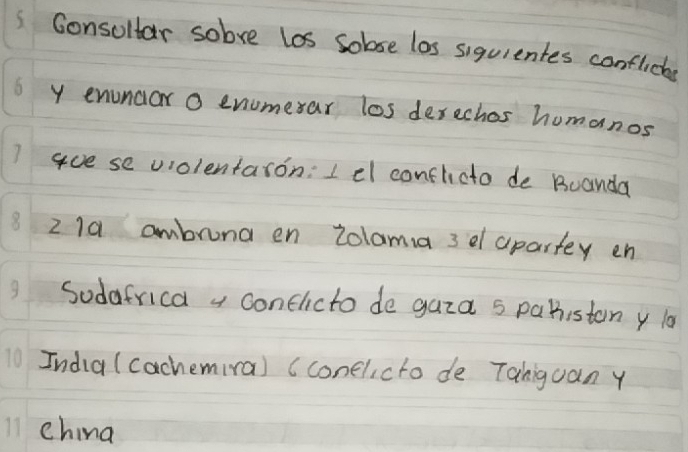 5 Consultar sobre los sobse los siguientes conflictos
6 y enunciar o enumerar los derechos humanos
7 que se violentarón: 1 el conflicto de Ruanda
8 2 la ambruna en Zolamia 3 el apartey en
9 Sudafrica 4 conflicto de gaza 5 pakistan y la
10 India (cachemira) 6 conflicto de Tahiguan y
11 china